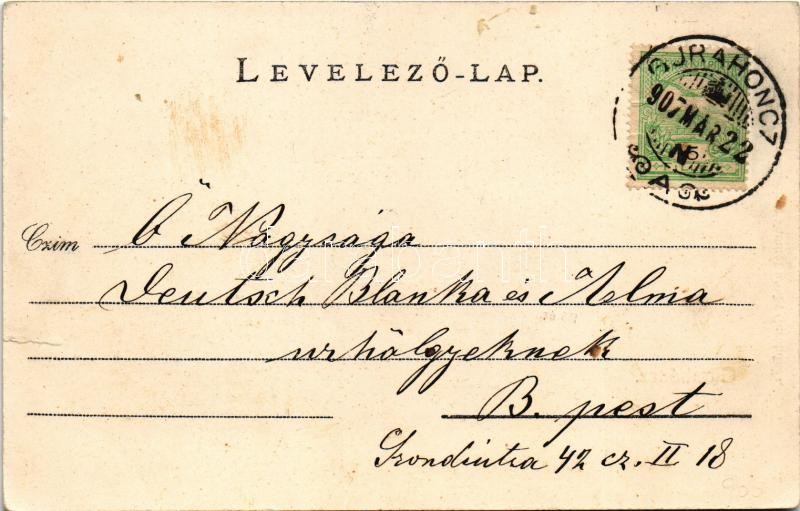 LEVELEZŐ-LAP.
907 MAR 22
N
5
Czim
Ő Nagysága
Deutsch Blanka és Alma
urhölgyeknek
B. pest
42 cz. II 18
darabanth